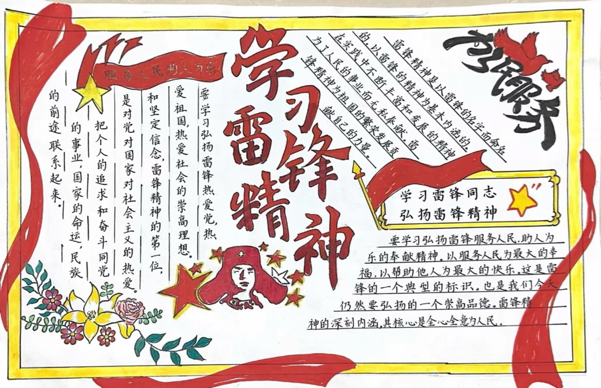 学习
雷锋
精神
要学习弘扬雷锋热爱党,热
爱祖国,热爱社会的崇高理想,
和坚定信念,雷锋精神的第一位,
是对党对国家对社会主义的热爱,
把个人的追求和奋斗同党
的事业,国家的命运,民族
的前途联系起来。
雷锋精神是以雷锋的名字命名
的,以雷锋的精神为基本内涵的,
在实践中不断丰富和发展的精神
为了人民的事业而无私奉献,雷
锋精神为祖国的繁荣发展贡
献自己的力量。
为人民服务
学习雷锋同志
弘扬雷锋精神
要学习弘扬雷锋服务人民,助人为
乐的奉献精神,以服务人民为最大的幸
福,以帮助他人为最大的快乐,这是雷
锋的一个典型的标识,也是我们今天
仍然要弘扬的一个崇高品德,雷锋精
神的深刻内涵,其核心是全心全意为人民。